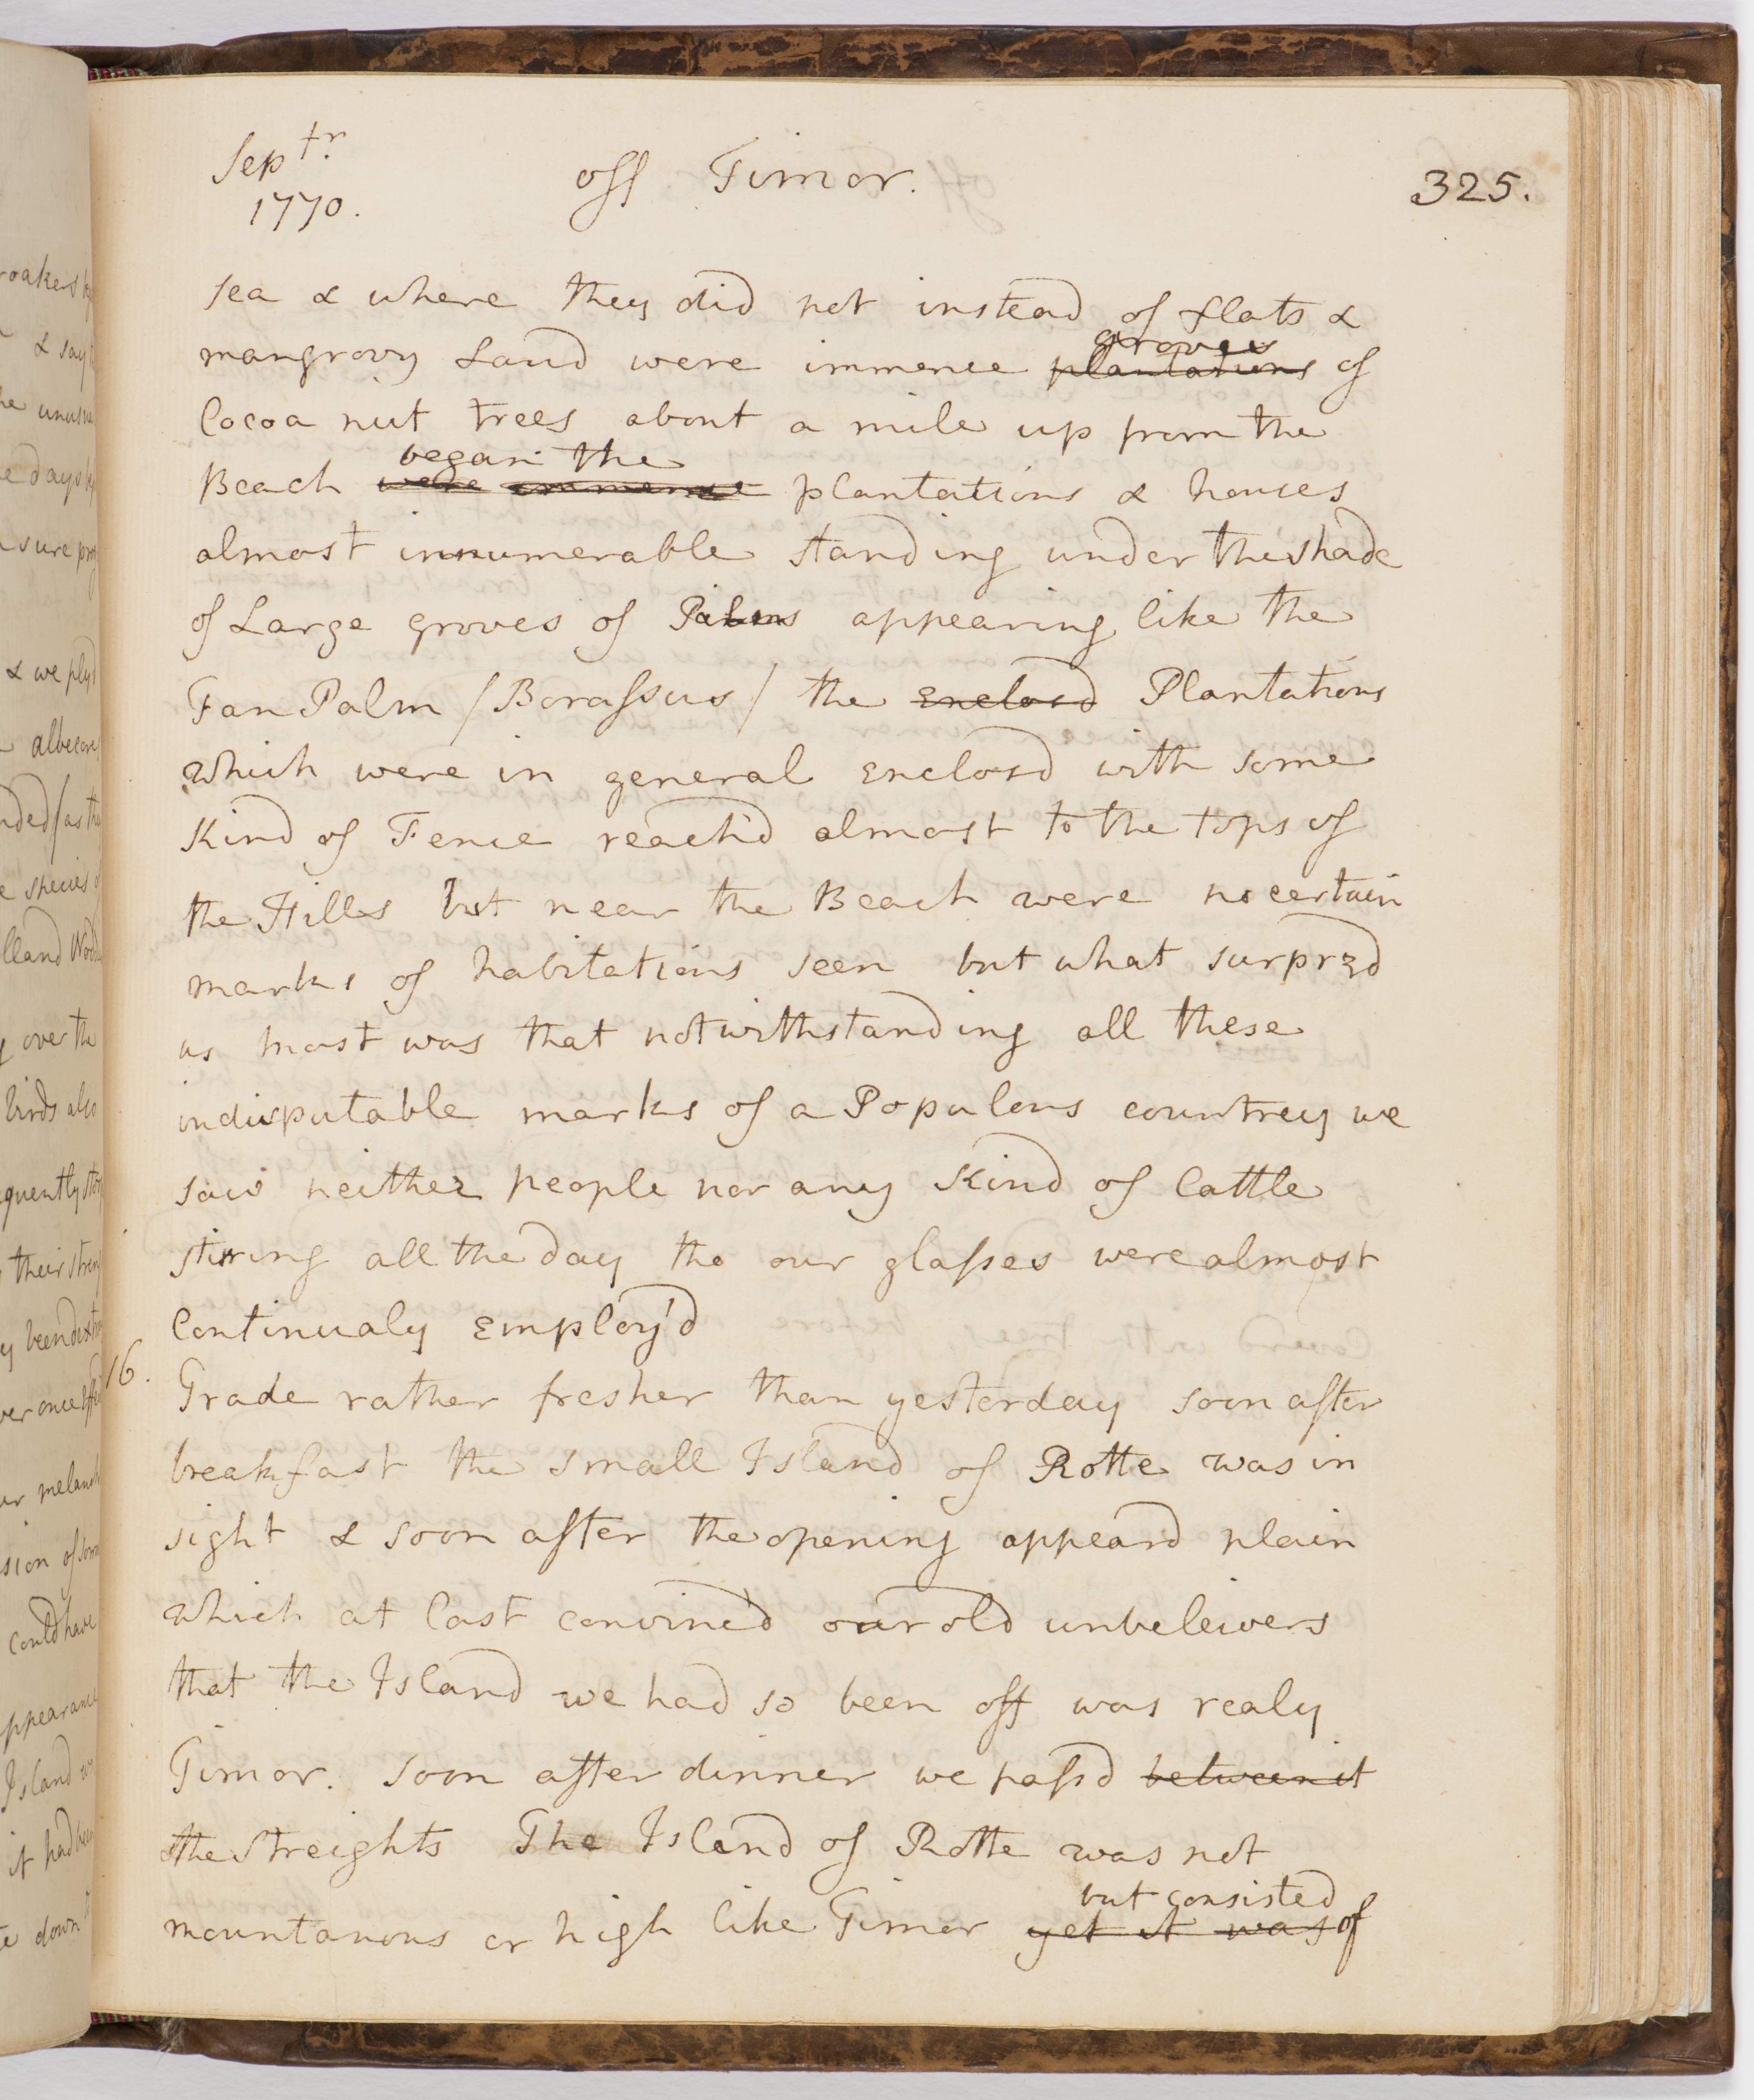 Sept.r
1770.
off Timor.
325.
sea & where they did not instead of flats &
mangrovy Land were immence plantations groves of
Cocoa nut trees about a mile up from the
Beach were immense began the plantations & houses
almost innumerable standing under the shade
of Large groves of Palms appearing like the
Fan Palm / Borassus / the Enclosd Plantations
which were in general Enclosd with some
Kind of Fence reach'd almost to the tops of
the Hills but near the Beach were no certain
marks of habitations seen but what surprzd
us most was that notwithstanding all these
indisputable marks of a Populous countrey we
saw neither people nor any Kind of Cattle
stirring all the day tho our glasses were almost
Continualy Employ'd
16.
Trade rather fresher than yesterday soon after
breakfast the small Island of Rotte was in
sight & soon after the opening appeard plain
which at last convinc'd our old unbeleivers
that the Island we had so been off was realy
Timor. soon after dinner we passd between it
the Streights The Island of Rotte was not
mountanous or high like Timor yet it was but consisted of
roakers
& say
e days
sure
& we plyd
albecores
nded / as the
species
lland
over the
birds also
quently
their
melanch
sion of
could have
ppearance
Island
it had been
down